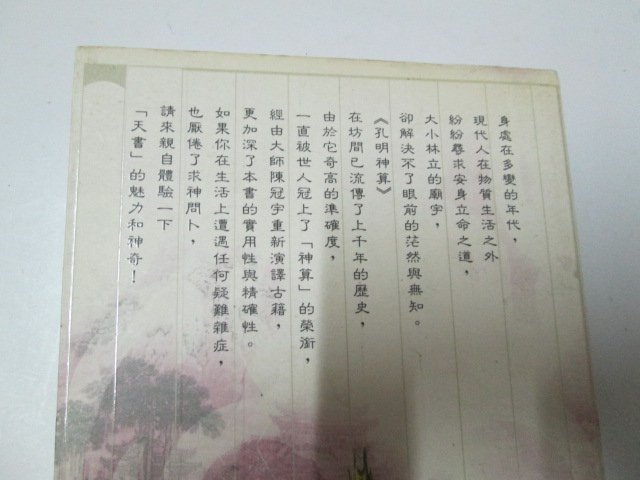 身處在多變的年代，
現代人在物質生活之外
紛紛尋求安身立命之道，
大小林立的廟宇，
卻解決不了眼前的茫然與無知。
《孔明神算》
在坊間已流傳了上千年的歷史，
由於它奇高的準確度，
一直被世人冠上了「神算」的榮銜，
經由大師陳冠宇重新演譯古籍，
更加深了本書的實用性與精確性。
如果你在生活上遭遇任何疑難雜症，
也厭倦了求神問卜，
請來親自體驗一下
「天書」的魅力和神奇！